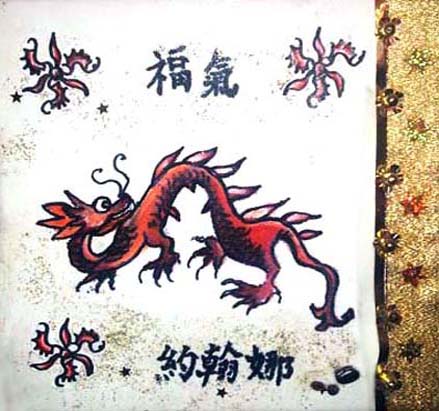 福氣
約翰娜